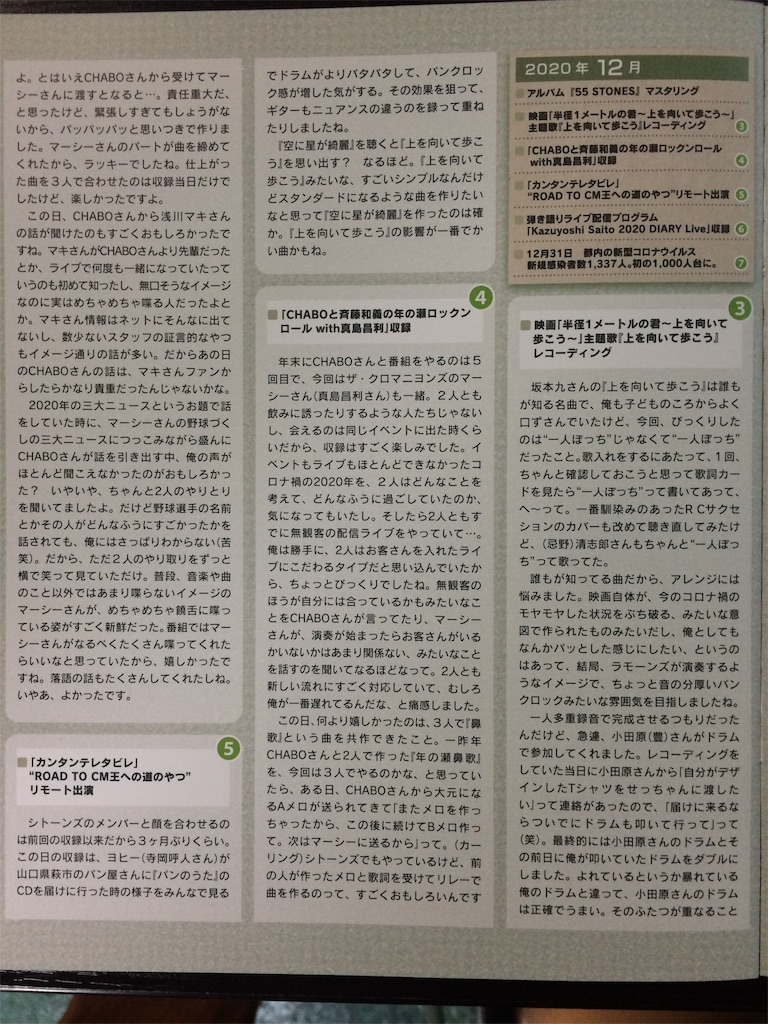 2020年 12月
アルバム『55 STONES』マスタリング
映画「半径1メートルの君〜上を向いて歩こう〜」
主題歌『上を向いて歩こう』レコーディング 3
「CHABOと斉藤和義の年の瀬ロックンロール
with真島昌利」収録 4
「カンタンテレタビレ」
“ROAD TO CM王への道のやつ”リモート出演 5
弾き語りライブ配信プログラム
「Kazuyoshi Saito 2020 DIARY Live」収録 6
12月31日 都内の新型コロナウイルス
新規感染者数1,337人。初の1,000人台に。 7
3
映画「半径1メートルの君〜上を向いて
歩こう〜」主題歌『上を向いて歩こう』
レコーディング
坂本九さんの『上を向いて歩こう』は誰も
が知る名曲で、俺も子どものころからよく
口ずさんでいたけど、今回、びっくりした
のは“一人ぼっち”じゃなくて“一人ぽっち”
だったこと。歌入れをするにあたって、1回、
ちゃんと確認しておこうと思って歌詞カー
ドを見たら“一人ぽっち”って書いてあって、
へ〜って。一番馴染みのあったRCサクセ
ションのカバーも改めて聴き直してみたけ
ど、(忌野)清志郎さんもちゃんと“一人ぽっ
ち”って歌ってた。
誰もが知ってる曲だから、アレンジには
悩みました。映画自体が、今のコロナ禍の
モヤモヤした状況をぶち破る、みたいな意
図で作られたものみたいだし、俺としても
なんかパッとした感じにしたい、というの
はあって、結局、ラモーンズが演奏するよ
うなイメージで、ちょっと音の分厚いパン
クロックみたいな雰囲気を目指しましたね。
一人多重録音で完成させるつもりだった
んだけど、急遽、小田原(豊)さんがドラム
で参加してくれました。レコーディングを
していた当日に小田原さんから「自分がデザ
インしたTシャツをせっちゃんに渡した
い」って連絡があったので、「届けに来るな
らついでにドラムも叩いて行って」って
(笑)。最終的には小田原さんのドラムと
その前日に俺が叩いていたドラムをダブルに
しました。よれているというか暴れている
俺のドラムと違って、小田原さんのドラム
は正確でうまい。そのふたつが重なること
でドラムがよりバタバタして、パンクロッ
ク感が増した気がする。その効果を狙って、
ギターもニュアンスの違うのを録って重ね
たりしましたね。
『空に星が綺麗』を聴くと『上を向いて歩こ
う』を思い出す? なるほど。『上を向いて
歩こう』みたいな、すごいシンプルなんだけ
どスタンダードになるような曲を作りたい
なと思って『空に星が綺麗』を作ったのは確
か。『上を向いて歩こう』の影響が一番でか
い曲かもね。
4
「CHABOと斉藤和義の年の瀬ロックン
ロール with真島昌利」収録
年末にCHABOさんと番組をやるのは5
回目で、今回はザ・クロマニヨンズのマー
シーさん(真島昌利さん)も一緒。2人とも
飲みに誘ったりするような人たちじゃない
し、会えるのは同じイベントに出た時くら
いだから、収録はすごく楽しみでした。イ
ベントもライブもほとんどできなかったコ
ロナ禍の2020年を、2人はどんなことを
考えて、どんなふうに過ごしていたのか、
気になってもいたし。そしたら2人ともす
でに無観客の配信ライブをやっていて…。
俺は勝手に、2人はお客さんを入れたライ
ブにこだわるタイプだと思い込んでいたか
ら、ちょっとびっくりでしたね。無観客の
ほうが自分には合っているかもみたいなこ
とをCHABOさんが言ってたり、マーシー
さんが、演奏が始まったらお客さんがいる
かいないかはあまり関係ない、みたいなこと
を話すのを聞いてなるほどなって。2人とも
新しい流れにすごく対応していて、むしろ
俺が一番遅れてるんだな、と痛感しました。
この日、何より嬉しかったのは、3人で『鼻
歌』という曲を共作できたこと。一昨年
CHABOさんと2人で作った『年の瀬鼻歌』
を、今回は3人でやるのかな、と思ってい
たら、ある日、CHABOさんから大元にな
るAメロが送られてきて「またメロを作っ
ちゃったから、この後に続けてBメロ作っ
て。次はマーシーに送るから」って。(カー
リング)シトーンズでもやっているけど、前
の人が作ったメロと歌詞を受けてリレーで
曲を作るのって、すごくおもしろいんです
よ。とはいえCHABOさんから受けてマー
シーさんに渡すとなると…。責任重大だ、
と思ったけど、緊張しすぎてもしょうがな
いから、パッパッパッと思いつきで作りま
した。マーシーさんのパートが曲を締めて
くれたから、ラッキーでしたね。仕上がっ
た曲を3人で合わせたのは収録当日だけで
したけど、楽しかったですよ。
この日、CHABOさんから浅川マキさん
の話が聞けたのもすごくおもしろかったで
すね。マキさんがCHABOさんより先輩だった
とか、ライブで何度も一緒になっていたって
いうのも初めて知ったし、無口そうなイメージ
なのに実はめちゃめちゃ喋る人だったよと
か。マキさん情報はネットにそんなに出て
ないし、数少ないスタッフの証言的なやつ
もイメージ通りの話が多い。だからあの日
のCHABOさんの話は、マキさんファンか
らしたらかなり貴重だったんじゃないかな。
2020年の三大ニュースというお題で話
をしていた時に、マーシーさんの野球づく
しの三大ニュースにつっこみながら盛んに
CHABOさんが話を引き出す中、俺の声が
ほとんど聞こえなかったのがおもしろかっ
た? いやいや、ちゃんと2人のやりとり
を聞いてましたよ。だけど野球選手の名前
とかその人がどんなふうにすごかったかを
話されても、俺にはさっぱりわからない(苦
笑)。だから、ただ2人のやり取りをずっと
横で笑って見ていただけ。普段、音楽や曲
のこと以外ではあまり喋らないイメージの
マーシーさんが、めちゃめちゃ饒舌に喋っ
ている姿がすごく新鮮だった。番組ではマー
シーさんがなるべくたくさん喋ってくれた
らいいなと思っていたから、嬉しかったで
すね。落語の話もたくさんしてくれたしね。
いやあ、よかったです。
5
「カンタンテレタビレ」
“ROAD TO CM王への道のやつ”
リモート出演
シトーンズのメンバーと顔を合わせるの
は前回の収録以来だから3ヶ月ぶりくらい。
この日の収録は、ヨヒー(寺岡呼人さん)が
山口県萩市のパン屋さんに『パンのうた』の
CDを届けに行った時の様子をみんなで見る